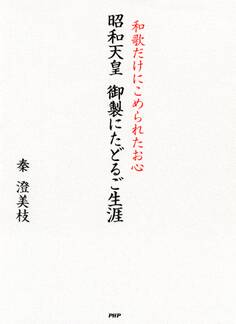 和歌だけにこめられたお心
昭和天皇 御製にたどるご生涯
秦 澄美枝
PHP